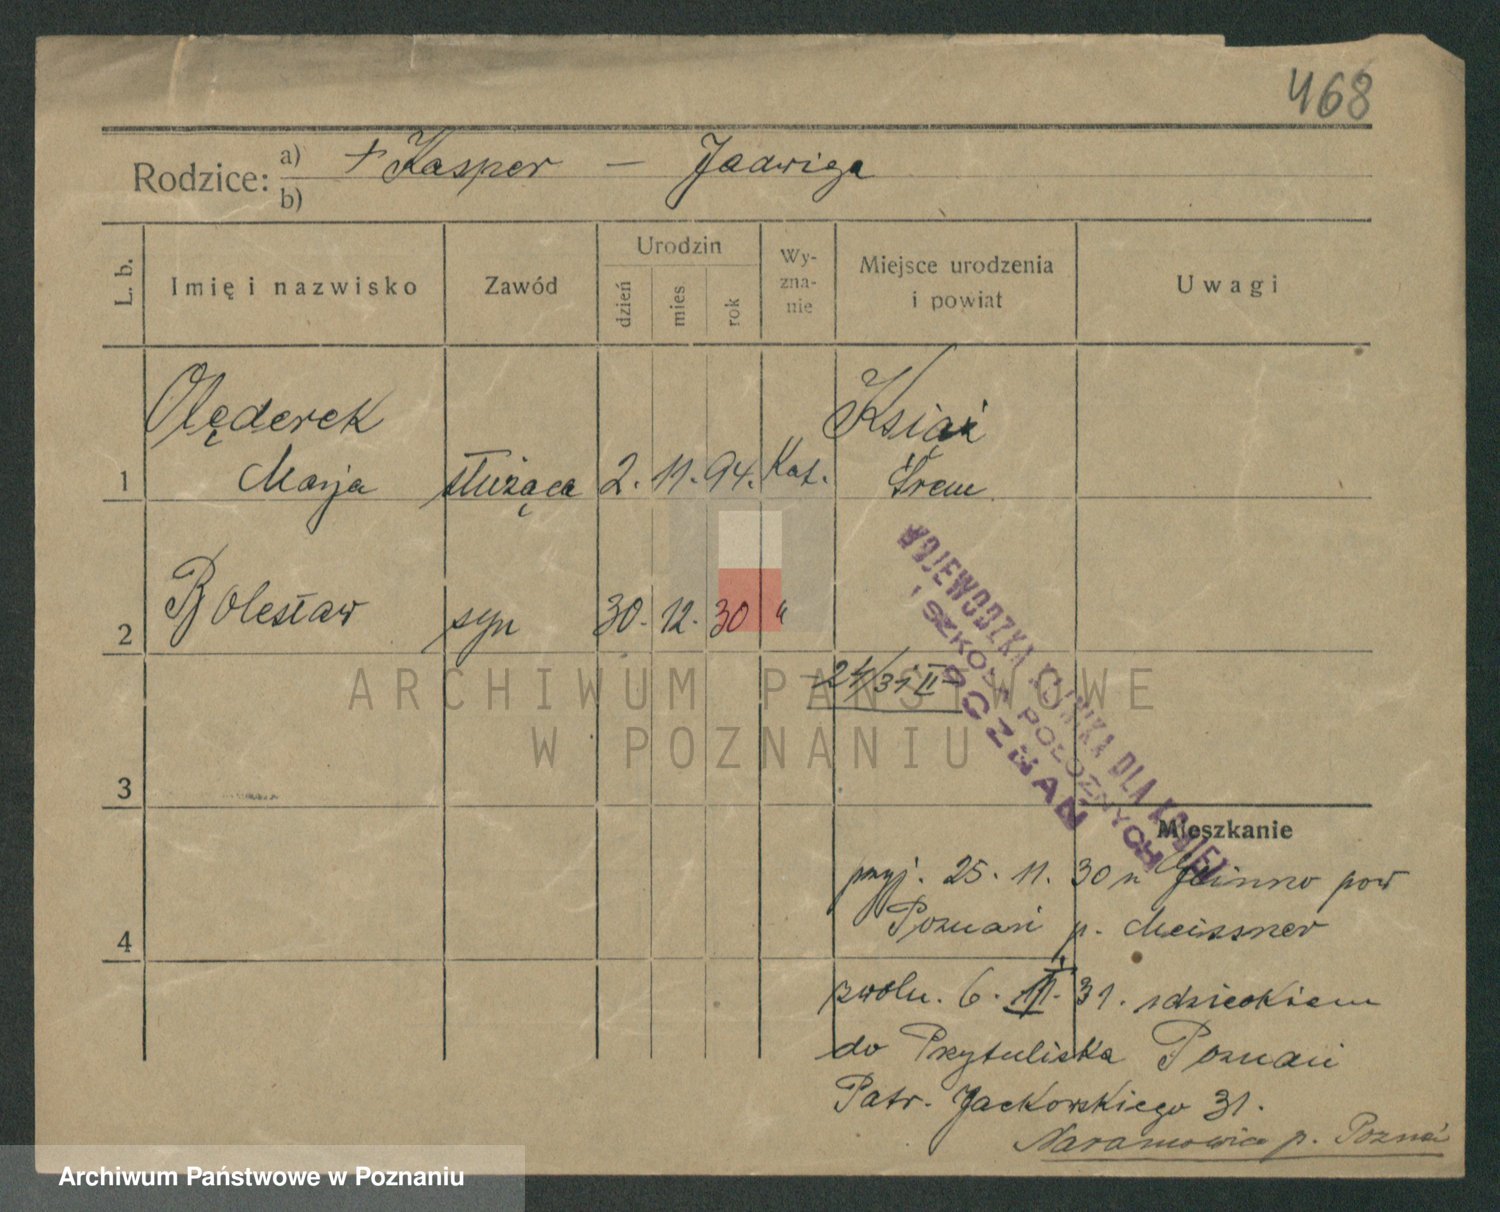 468
Rodzice: a) † Kasper — Jadwiga
b)
L. b. Imię i nazwisko Zawód Urodzin dzień mies rok Wy-zna-nie Miejsce urodzenia i powiat Uwagi
Olęderek Książ
1 Marja służąca 2. 11. 94. Kat. Śrem
2 Bolesław syn 30. 12. 30 "
24/31 II
WOJEWÓDZKA KLINIKA DLA KOBIET
I SZKOŁA POŁOŻNYCH
POZNAŃ
ARCHIWUM PAŃSTWOWE
W POZNANIU
3
Mieszkanie
przyj. 25. 11. 30 z pow
4 Poznań p. Meissner
zwoln. 6. 31. z dzieckiem
do Przytuliska Poznań
Patr. Jackowskiego 31.
Naramowice p. Poznań
Archiwum Państwowe w Poznaniu